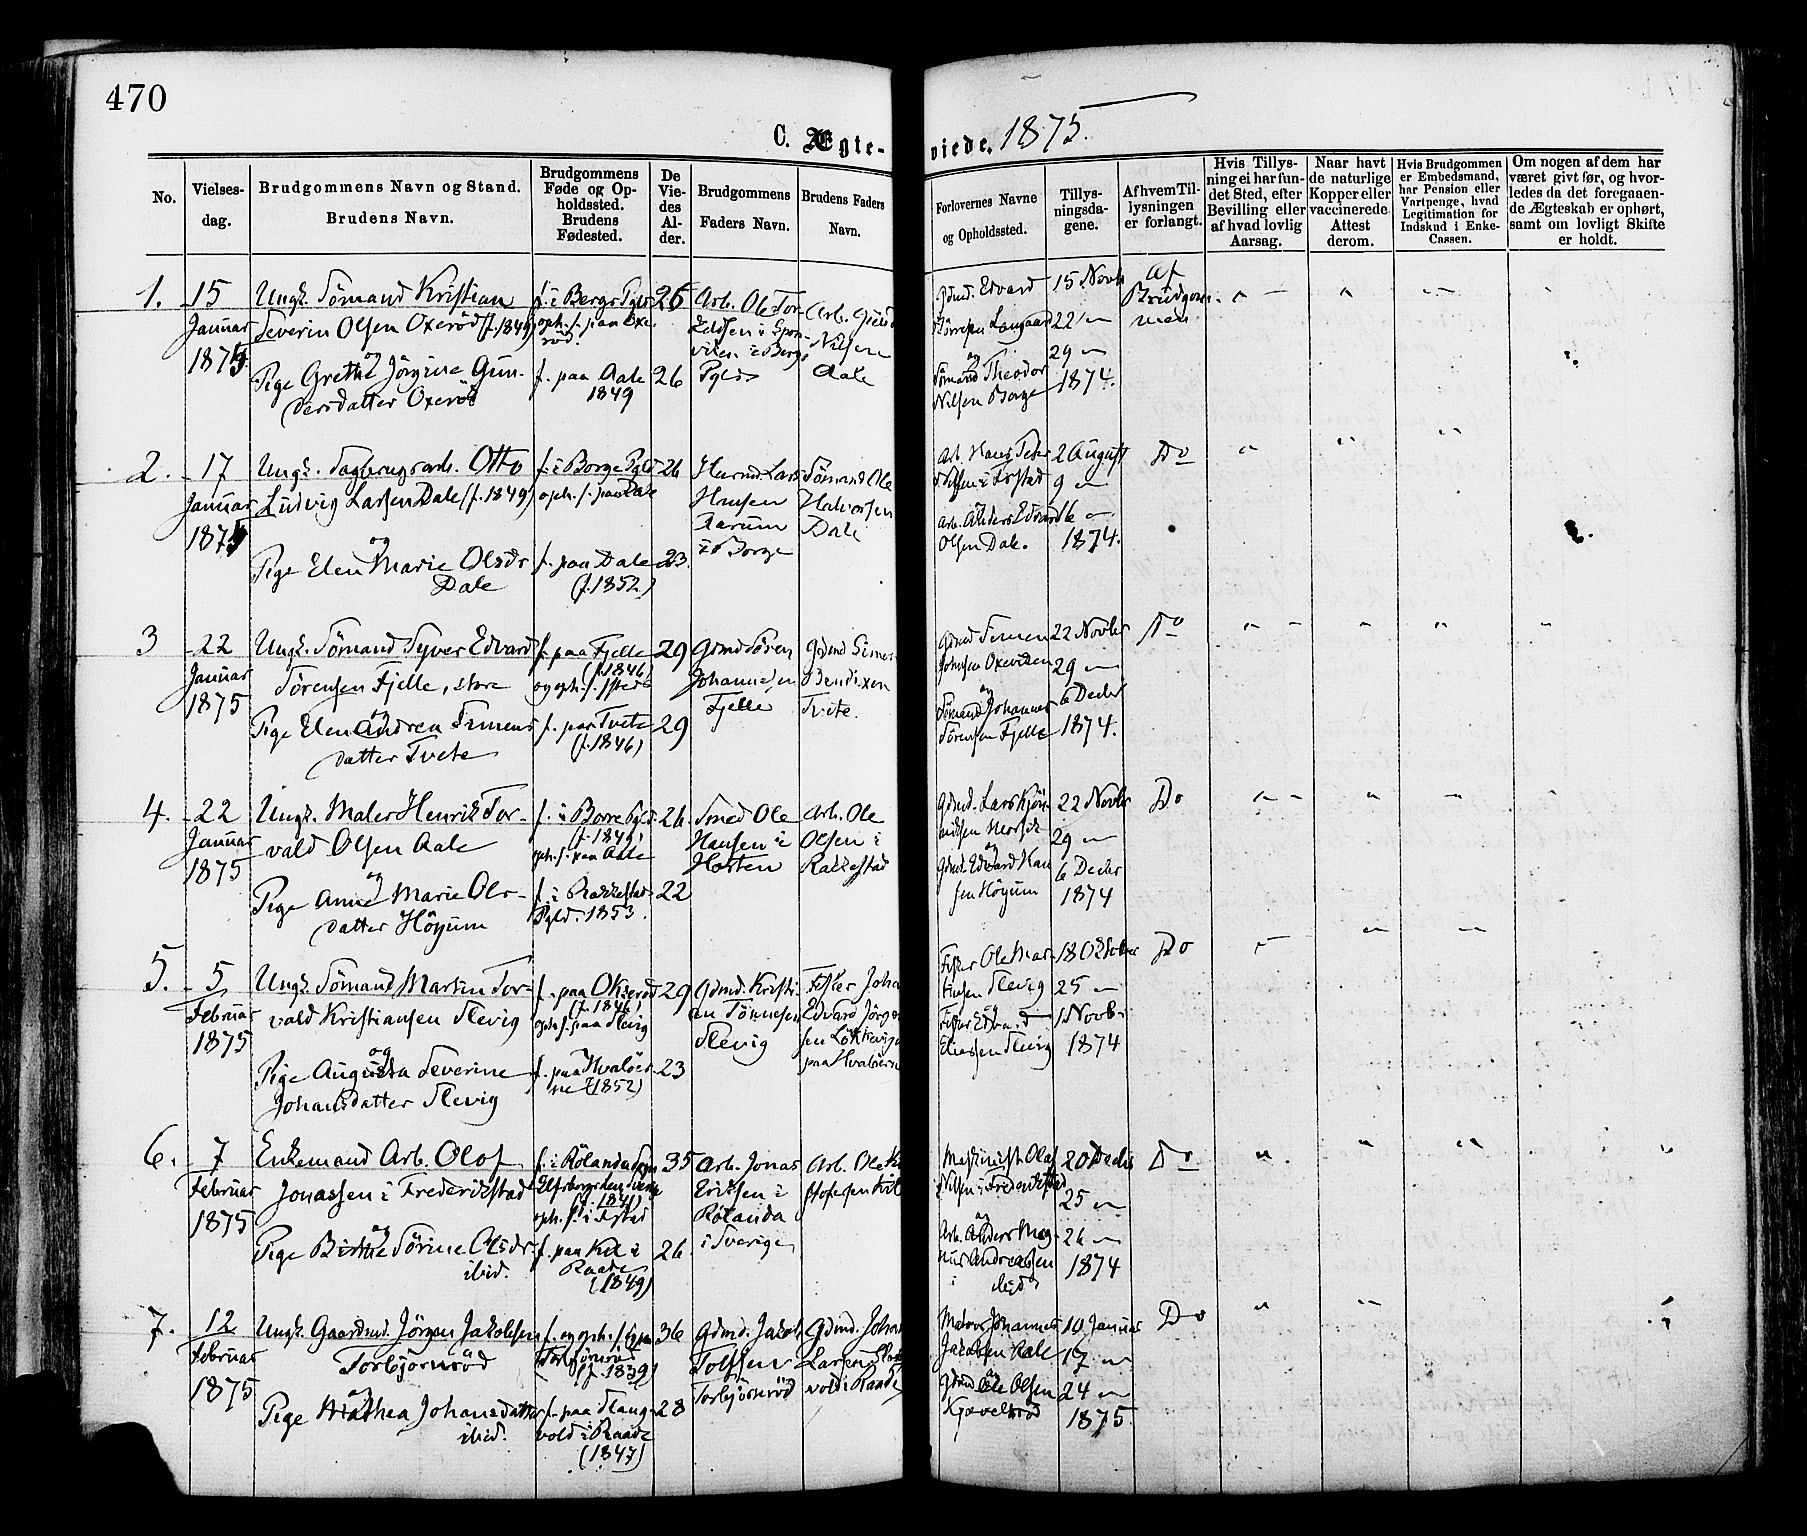 470
C. Ægte-viede. 1875.
No.
Vielses-
dag.
Brudgommens Navn og Stand.
Brudens Navn.
Brudgommens
Føde og Op-
holdssted.
Brudens
Fødested.
De
Vie-
des
Al-
der.
Brudgommens
Faders Navn.
Brudens Faders
Navn.
Forlovernes Navne
og Opholdssted.
Tillys-
ningsda-
gene.
Af hvem Til-
lysningen
er forlangt.
Hvis Tillys-
ning ei har fun-
det Sted, efter
Bevilling eller
af hvad lovlig
Aarsag.
Naar havt
de naturlige
Kopper eller
vaccinerede.
Attest
derom.
Hvis Brudgommen
er Embedsmand,
har Pension eller
Vartpenge, hvad
Legitimation for
Indskud i Enke-
Cassen.
Om nogen af dem har
været givt før, og hvor-
ledes da det foregaaen-
de Ægteskab er ophørt,
samt om lovligt Skifte
er holdt.
1.
15
Januar
1875
Ungk. Sömand Kristian
Severin Olsen Oxeröd (f. 1849)
og
Pige Grethe Jörgine Gun-
dersdatter Oxeröd
f. i Bergs Pgld
oph. s. paa Oxe-
röd.
f. paa Aale
1849
26
26
Arb. Ole Tor-
i Bergs
Pgld
Arb.
Nilsen
Aale
Gdmd. Edvard
og
Sömand Theodor
Nilsen Borge
15 Novbr
22 "
29 "
1874.
Af
Brudgom-
men
2.
17
Januar
1875
Ungk. Sagbrugsarb. Otto
Ludvig Larsen Dale (f. 1849)
og
Pige Elen Marie Olsdr
Dale
f. i Borge Pgld
oph. s. paa Dale
f. paa Dale
(f. 1852)
26
23
Husmd Lars
Hansen
Aarum
i Borge
Sömand Ole
Halvorsen
Dale
Arb. Hans Peter
Nilsen i Frstad
Arb. Anders Edvard
Olsen Dale.
2 August
9 "
16 "
1874.
Do
3
22
Januar
1875
Ungk. Sömand Syver Edvard
Sörensen Fjelle, store
og
Pige Elen Andrea Simens-
datter Tvete
f. paa Fjelle
(f. 1846)
og oph. s. ssteds
f. paa Tvete
(f. 1846)
29
29
Gdmd Sören
Johannesen
Fjelle
Gdmd Simen
Bendixen
Tvete.
Gdmd Simen
Johnsen Oxeviken
og
Sömand Johannes
Sörensen Fjelle
22 Novbr
29 "
6 Decbr
1874.
Do
4.
22
Januar
1875
Ungk. Maler Henrik Tor-
vald Olsen Aale
og
Pige Anne Marie Ols-
datter Höyum
f. i Borre Pgld
(f. 1849)
oph. s. paa Aale
f. i Rakkestad
Pgld. 1853.
26
22
Smed Ole
Hansen i
Horten
Arb. Ole
Olsen i
Rakkestad
Gdmd. Lars
og
Gdmd. Edvard Han-
sen Höyum
22 Novbr
29 "
6 Decbr
1874
Do
5.
5
Februar
1875
Ungk. Sömand Martin Tor-
vald Kristiansen Slevig
og
Pige Augusta Severine
Johansdatter Slevig
f. paa Okseröd
(f. 1846)
oph. s. paa Slevig
f. paa Hvalöer-
ne (1852)
29
23
Gdmd. Kristi-
an Tönnesen
Slevig
Fisker Johan
Edvard Jörgen-
sen Lökkevigen
paa Hvalöerne
Fisker Ole Mar-
tinsen Slevig
og
Fisker Edvard
Eliassen Slevig
18 Oktober
25 "
1 Novbr
1874
Do
6.
7
Februar
1875
Enkemand Arb. Olof
Jonassen i Frederikstad
og
Pige Birthe Sörine Olsdr
ibid.
f. i Rölanda Sogn
(f. 1841)
oph. s. i Fstad
f. paa Kil i
Raade
(1849)
35
26
Arb. Jonas
Eriksen i
Rölanda
i Sverige
Arb. Ole Kri-
stofersen Kil
Maskinist Olaf
Nilsen i Fredrikstad
og
Arb. Anders Mag-
nus Andreassen
ibid
20 Decbr
25 "
26 "
1874
Do
7.
12
Februar
1875
Ungk. Gaardmd. Jörgen Jakobsen
Torbjörnröd
og
Pige Mathea Johansdatter
ibid.
f. og oph. s. paa
Torbjörnröd
(f. 1839)
f. paa Slang-
vold i Raade
(1847)
36
28
Gdmd. Jakob
Tolfsen
Torbjörnröd
Gdmd. Johan
Larsen Slang-
vold i Raade
Matros Johannes
Jakobsen Aale
og
Gdmd Ole Olsen
Kjæveltröd
10 Januar
17 "
24 "
1875.
Do